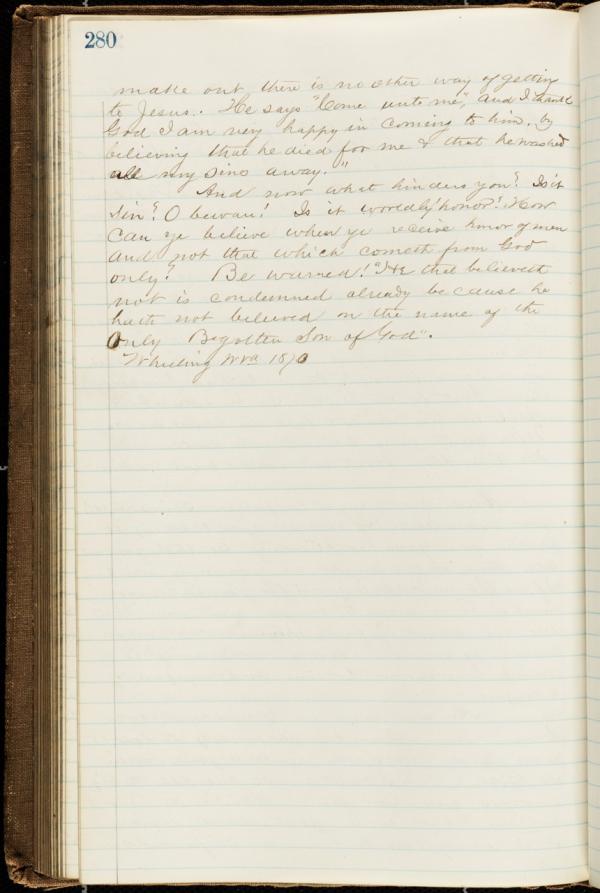 280
make out, there is no other way of getting
to Jesus. He says "Come unto me", and I thank
God I am very happy in coming to him, by
believing that he died for me & that he washed
all my sins away."
And now what hinders you? Is it
sin? O beware! Is it worldly honor? How
can ye believe when ye receive honor of men
and not that which cometh from God
only? Be warned! "He that believeth
not is condemned already because he
hath not believed on the name of the
Only Begotten Son of God".
Wheeling W Va 1870